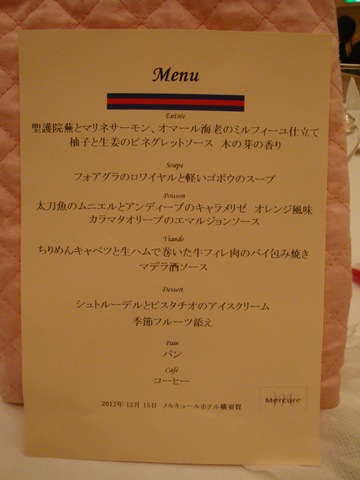 Menu
Entrée
聖護院蕪とマリネサーモン、オマール海老のミルフィーユ仕立て
柚子と生姜のビネグレットソース 木の芽の香り
Soupe
フォアグラのロワイヤルと軽いゴボウのスープ
Poisson
太刀魚のムニエルとアンディーブのキャラメリゼ オレンジ風味
カラマタオリーブのエマルジョンソース
Viande
ちりめんキャベツと生ハムで巻いた牛フィレ肉のパイ包み焼き
マデラ酒ソース
Dessert
シュトルーデルとピスタチオのアイスクリーム
季節フルーツ添え
Pain
パン
Café
コーヒー
2012年 12月 15日 メルキュールホテル横須賀
Mercure